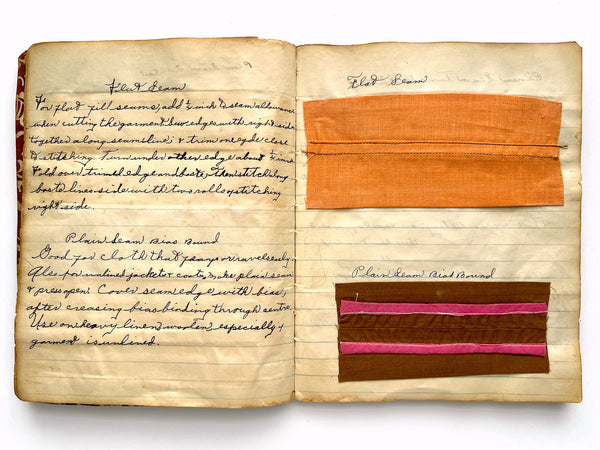 Flat Seam
For flat fell seams, add ½ inch to seam allowance
when cutting the garment. Sew edges with right sides
together along seamline; & trim one edge close
to stitching. Turn under other edge about ¼ inch
fold over trimmed edge and baste, then stitch along
basted lines side with two rolls of stitching
right side.
Plain Seam Bias Bound
Good for cloth that frays or ravels easily
Also for unlined jackets & coats, make plain seam
& press open. Cover seam edge with bias,
after creasing bias binding through centre.
Use on heavy linen, woolen, especially if
garment is unlined.
Flat Seam
Plain Seam Bias Bound